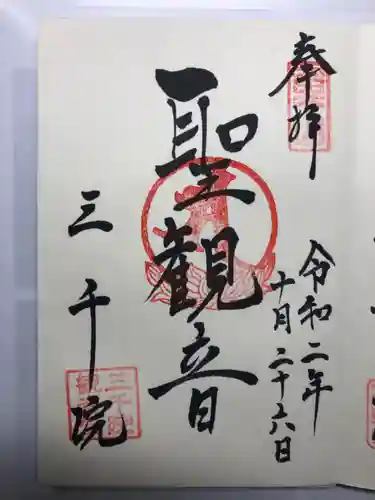 奉拝
令和二年
十月二十六日
聖観音
三千院